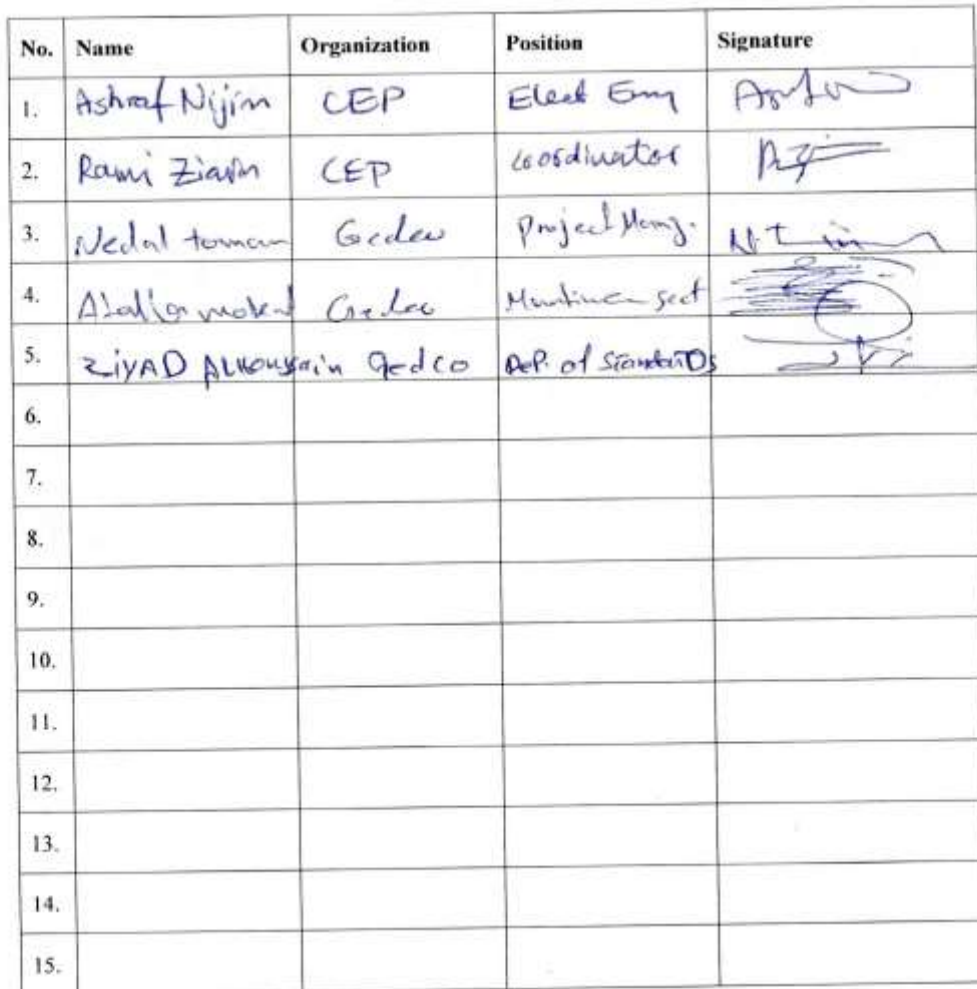 No. Name Organization Position Signature
1. Ashraf Nijim CEP Elect Eng
2. Rami CEP coordinator
3. Nedal Gedco Project Mang.
4. Gedco
5. ZiYAD ALHOUSSain gedco DeP. of StandarDs
6.
7.
8.
9.
10.
11.
12.
13.
14.
15.